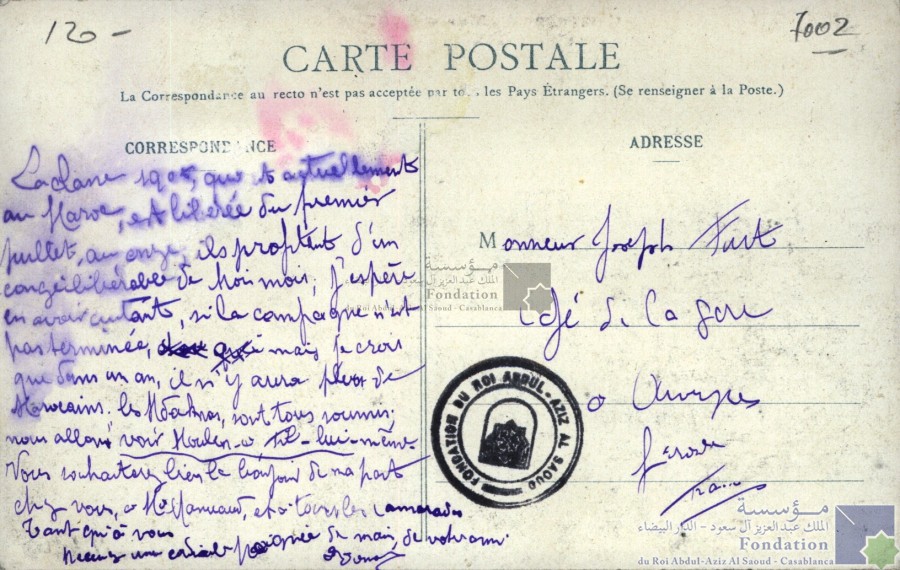 120 -
7002
CARTE POSTALE
La Correspondance au recto n'est pas acceptée par to.. les Pays Étrangers. (Se renseigner à la Poste.)
CORRESPONDANCE
ADRESSE
La classe 1905, qui est actuellement
au Maroc, est libérée du premier
juillet, au onze, ils profitent d'un
congé libérable de trois mois, j'espère
en avoir autant, si la campagne n'est
pas terminée, mais je crois
que dans un an, il n'y aura plus de
Marocains. les sont tous soumis,
nous allons voir Moulay lui-même
Vous souhaiterez bien le bonjour de ma part
chez vous, à et à tous les camarades
Tant qu'à vous
Recevez une cordiale poignée de main, de votre ami
Monsieur Joseph
Café de la gare
à
مؤسسة
الملك عبد العزيز آل سعود
Fondation
du Roi Abdul-Aziz Al Saoud - Casablanca
FONDATION DU ROI ABDUL-AZIZ AL SAOUD
مؤسسة
الملك عبد العزيز آل سعود - الدار البيضاء
Fondation
du Roi Abdul-Aziz Al Saoud - Casablanca